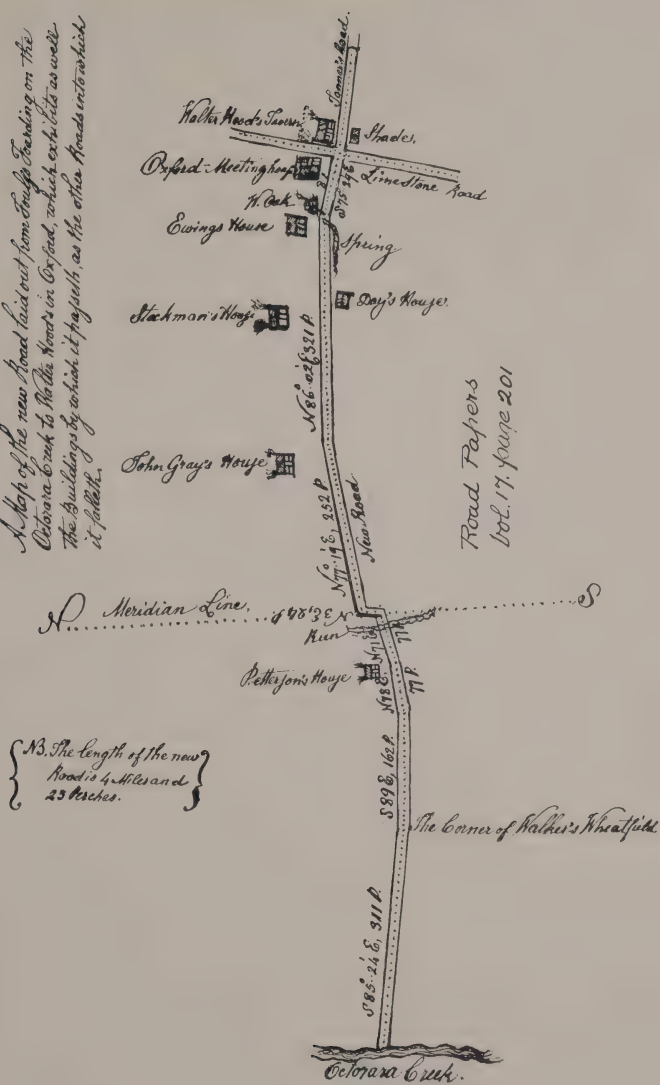 A Map of the new Road laid out from Foulgs Foarding on the
Octorara Creek to Walter Hood's in Oxford, which exhibits as well
the Buildings by which it passeth, as the other Roads into which
it falleth.
Walter Hood's Tavern
Road.
Shades.
Oxford Meetinghouse
LimeStone Road
W. Oak
81
S75 29 E
Ewings House
Spring
Day's House.
Stockman's House
N86°.02'E 321 P.
John Gray's House
N77°.19'E, 252 P.
New Road
Road Papers
vol. 17. page 201
N
Meridian Line.
N 3 E, 24 P
S
Run
N71 E
77 P.
Petterson's House
N78 E.
77 P.
{NB. The length of the new
Road is 4 Miles and
23 Perches.}
S89 E, 162 P.
The Corner of Walker's Wheatfield
S85°.24'E, 311 P.
Octorara Creek.